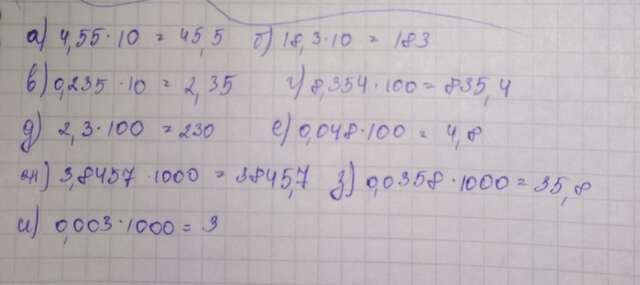 а) 4,55·10 = 45,5 б) 18,3·10 = 183
в) 0,235·10 = 2,35 г) 8,354·100 = 835,4
д) 2,3·100 = 230 е) 0,048·100 = 4,8
ж) 3,8457·1000 = 3845,7 з) 0,0358·1000 = 35,8
и) 0,003·1000 = 3